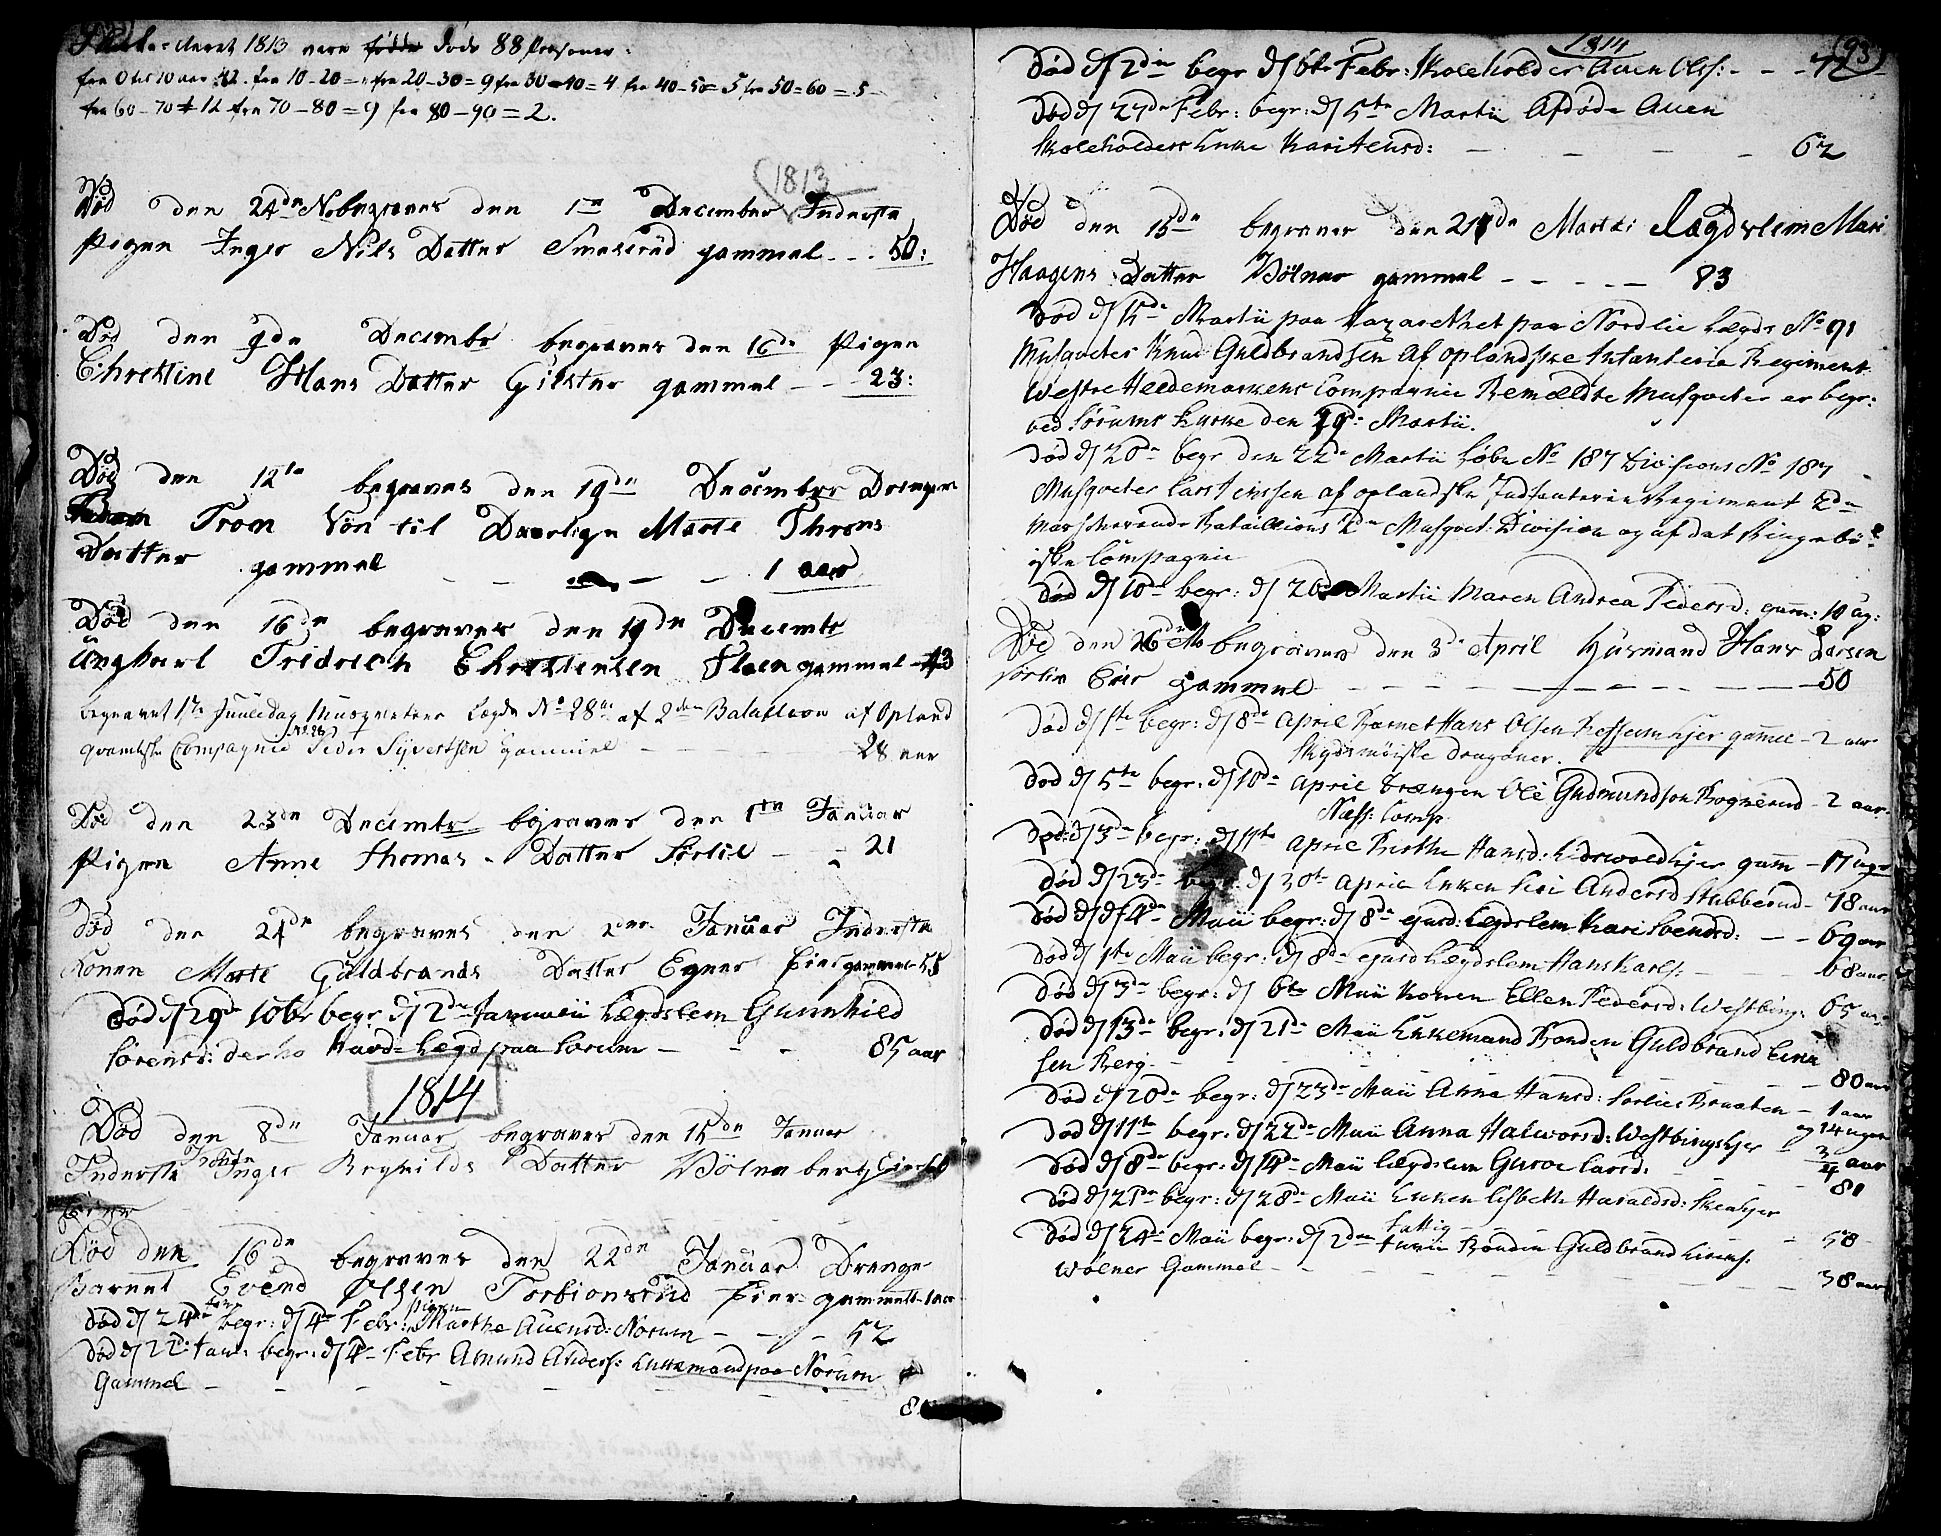 Aaret 1813 vare født døde 88 Personer:
fra 0 til 10 aar 42. fra 10-20 = " fra 20-30 = 9 fra 30-40 = 4 fra 40-50 = 5 fra 50-60 = 5
fra 60-70 = 12 fra 70-80 = 9 fra 80-90 = 2.
1813
Død den 24de No begraves den 1te December Inderste
Pigen Inger Nils Datter Smaserud gammel - - - 50:
Død den 9de Decembr begraves den 16de Pigen
Chrestine Hans Datter gammel - - - 23:
Død den 12te begraves den 19de December Drengen
Trom Sön til Marte Throns
Datter gammel - - - - 1 aar
Død den 16de begraves den 19de Decembr
Ungkarl Fridrich Christensen gammel - 43
begravet 1te Juuledag Musqueteer Lægds No 28 af 2den Batallion af Opland
Compagnie Peder Syvertsen gammel - - - - 28 aar
Død den 23de Decembr bgraves den 1ten Januar
Pigen Anne Thomas - Datter Sørlie - - - 21
Død den 24de begraves den 2den Januar Inderste
Konen Marte Guldbrands Datter Egner Eier gammel 55
Død d/ 29de 10br begr d/ 2de Januarii Lægdslem Gunnhild
Sørensd: Lægd paa Sorum - - - 85 aar
1814
Død den 8de Januar begraves den 15de Januar
Inderste Inger Regnilds Datter
Eier
Død den 16de begraves den 22de Januar Drenge
Barnet Evend Olsen Torbionsrud Eier gammelt 1 aar
Død d/ 24de Jan: begr: d/ 4de Febr: Pigen Marthe Auensd: Norum - - - 52
Død d/ 22: Jan: begr: d/ 4de Febr Amund Anders: Enkemand paa Norum
Gammel - - - - - - 8
93
1814
Død d/ 2den begr d/ 6te Febr: Skoleholder Auen Ols: - - - 72
Død d/ 27de Febr: begr: d/ 5te Martii Afdøde Auen
Skoleholders Enke Kari Jensd: - - - - 62
Død den 15de begraves den 21de Martii Lægdslem Mari
Haagens Datter Vølner gammel - - - - - 83
Død d/ 15de Martii paa Lazarethet paa Nordlie Lægds No 91
Musqueter Knud Guldbrandsen af oplandske Infanterie Regiment
Westre Heedemarkens Compagnie Bemældte Musqueter er begr:
ved Sørums Kirke den 29de Martii.
Død d/ 20de begr den 22de Martii Løbe No 187 Divisions No 187
Musqueter Lars Jenssen af oplandske Infanterie Regiment 2de
Marscherende Bataillions 2de Musquet: Division og af dat Ringebo
iske Compagnie
Død d/ 10de begr: d/ 20de Martii Maren Andrea Pedersd: gam: 10 ug:
Død den 26de Ms begraves den 3de April Husmand Hans Larsen
Sørlie Eier gammel - - - - - - - 50
Død d/ 1te begr: d/ 8de April Barnet Hans Olsen gamel - 2 aar
Skydsmøiske Dragoner.
Død d/ 5te begr: d/ 10de April Drængen Ole Gudmundson Rognerud - 2 aar
Næss: Comp
Død: d/ 3de begr: d/ 11te April Birthe Hansd: gam - 17 uger
Død d/ 23de begr: d/ 30te April Enken Siri Andersd Stubberud - 78 aar
Død d/ d/ 4de Maii begr: d/ 8de ejusd: Lægdslem Kari Svensd: - - 69 aar
Død d/ 1te Maii begr: d/ 8de ejusd Lægdslem Hans Karls: - - 68 aar
Død d/ 3de begr: d/ 6te Maii Konen Ellen Pedersd: Westbing: 65 aar
Død d/ 13de begr: d/ 21de Maii Enkemand Bonden Guldbrand
sen Berg. - - - - - - 80 aar
Død d/ 20de begr: d/ 23de Maii Anna Hansd: Sørlie Braaten - 1 aar
og 14 uger
Død d/ 11te begr: d/ 22de Maii Anna Halworsd: Westbingshjer - 3/4 aar
Død d/ 8de begr: d/ 14de Maii Lægdslem Guroe Larsd: - - - 81
Død d/ 21de begr: d/ 28de Maii Enken Lisbeth Haraldsd: - 58
Død d/ 24de Maii begr: d/ 2den Junii Fattig Bonden Guldbrand
Wolner Gammel - - - - - - 38 aar